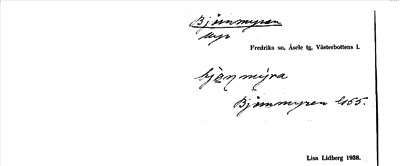 Björnmyren
myr
Fredrika sn, Åsele tg, Västerbottens l.
myra
Björnmyren
Lisa Lidberg 1938.